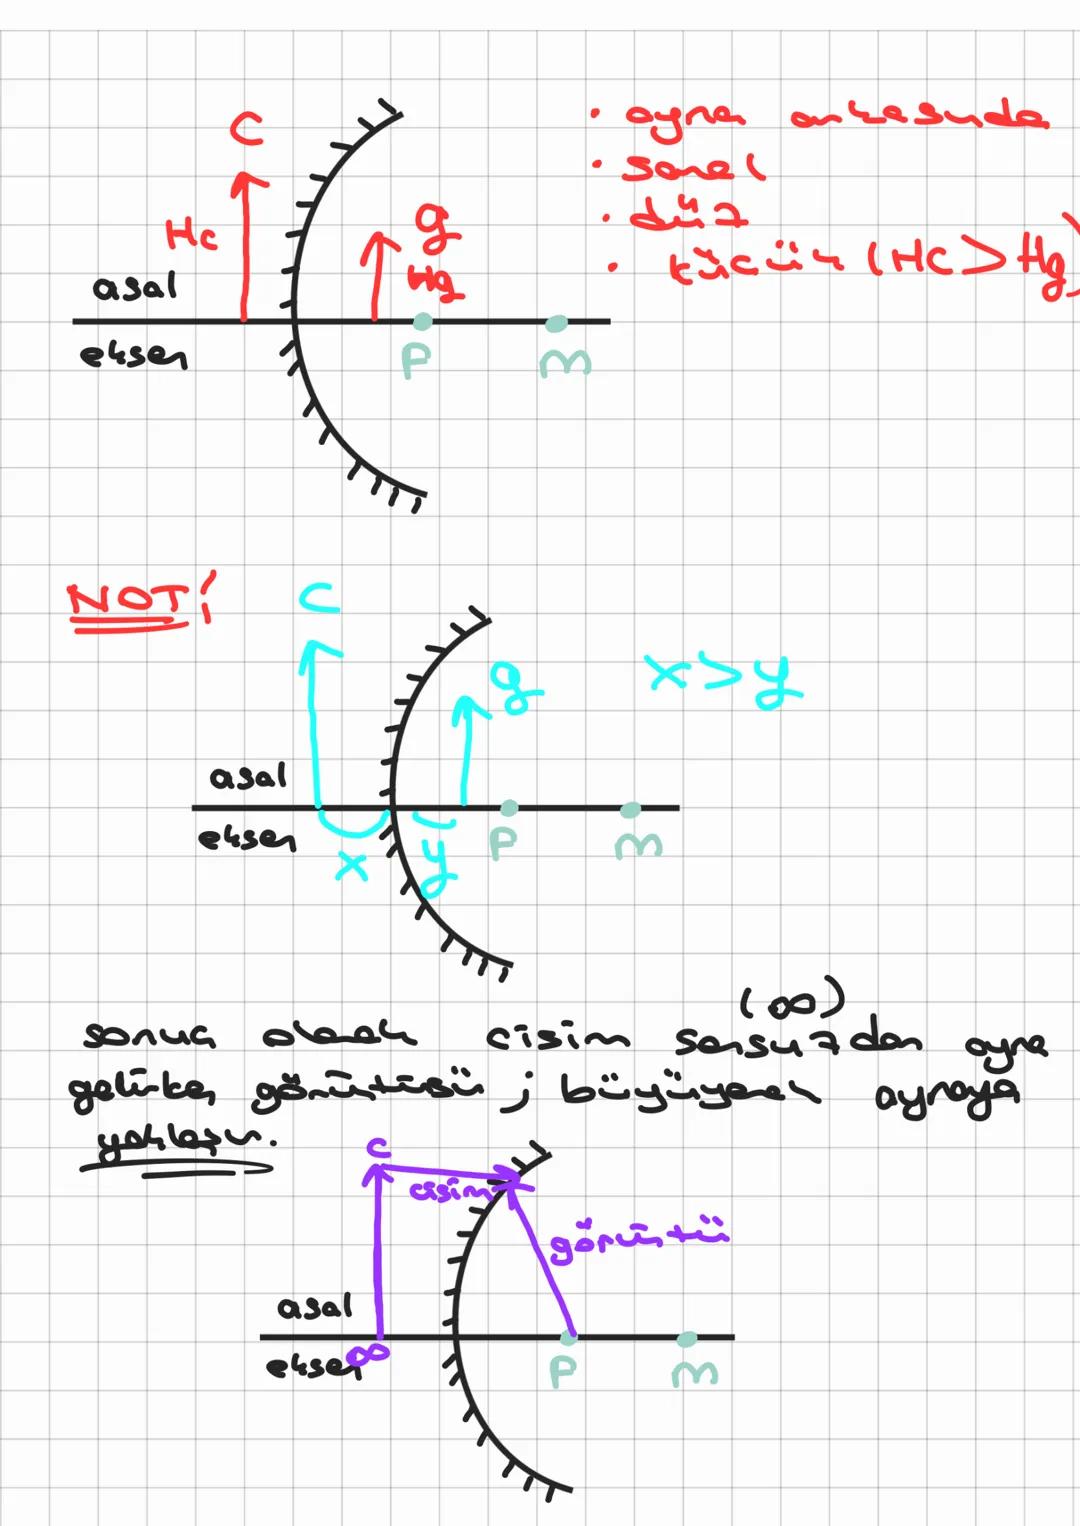 C
• ayna arkasında
• sanal
• düz
• küçük (Hc > Hg)
Hc
g
Hg
asal
eksen
P
m
NOT!
C
g
x > y
asal
eksen
x
y
P
m
(∞)
sonuç olarak cisim sonsuzdan ayna
gelirken görüntüsü ; büyüyerek aynaya
yaklaşır.
C
cisim
görüntü
asal
∞
eksen
P
m